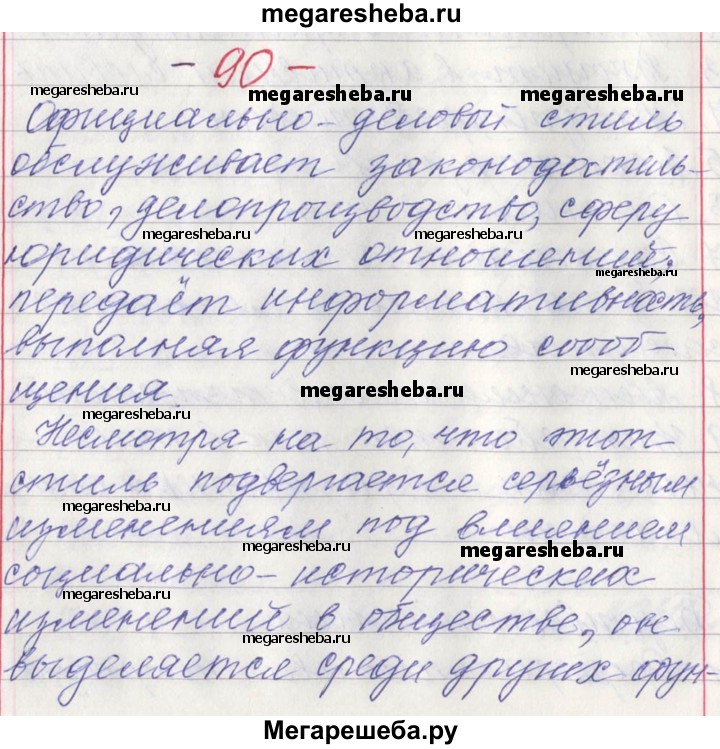 megaresheba.ru
- 90 -
megaresheba.ru megaresheba.ru megaresheba.ru
Официально-деловой стиль
обслуживает законодатель-
ство, делопроизводство, сферу
megaresheba.ru megaresheba.ru
юридических отношений;
megaresheba.ru
передаёт информативность,
выполняя функцию сообб-
megaresheba.ru
щения.
megaresheba.ru
megaresheba.ru
Несмотря на то, что этот
стиль подвергается серьёзным
megaresheba.ru megaresheba.ru
изменениям под влиянием
megaresheba.ru megaresheba.ru
социально-исторических
megaresheba.ru megaresheba.ru
изменений в обществе, он
megaresheba.ru
выделяется среди других фун-
megaresheba.ru
Мегарешеба.ру